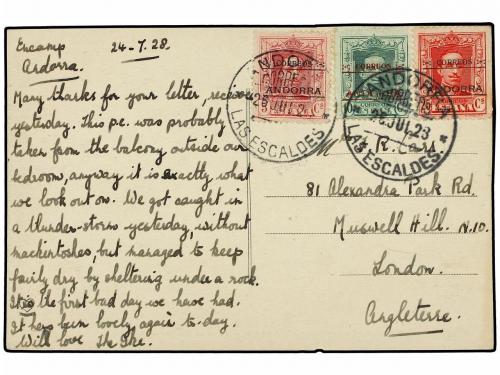 Encamp 24-7.28.
Andorra.
Many thanks for your letter, received
yesterday. This p.c. was probably
taken from the balcony outside our
bedroom, anyway it is exactly what
we look out on. We got caught in
a thunder-storm yesterday, without
mackintoshes, but managed to keep
fairly dry by sheltering under a rock.
It is the first bad day we have had.
It has been lovely again to-day.
Will love
CORREOS
ANDORRA
CORREOS
CORREOS
ANDORRA
ANDORRA
LAS ESCALDES
ANDORRA
LAS ESCALDES
81 Alexandra Park Rd.
Muswell Hill. N.10.
London.
Angleterre.